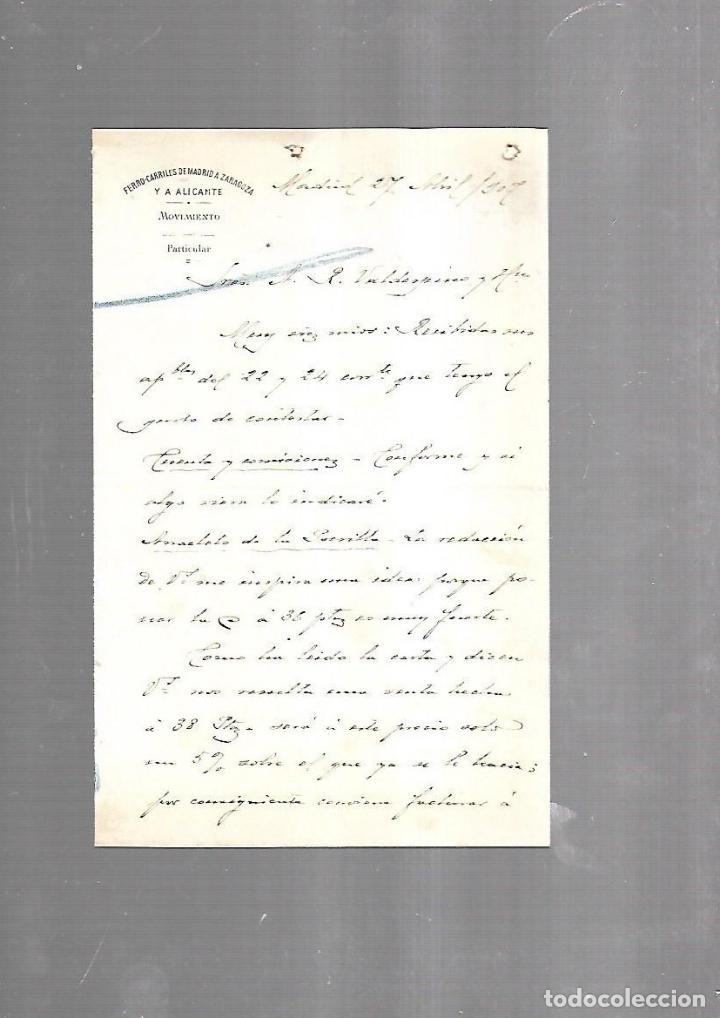 FERRO-CARRILES DE MADRID A ZARAGOZA
Y A ALICANTE
MOVIMIENTO
Particular
Madrid 27 Abril /907
Sres. A. R. Valdespino y Hno
Muy Srs mios: Recibidas sus
apbles del 22 y 24 corrte que tengo el
gusto de contestar -
Cuenta y comisiones - Conforme y si
algo viera lo indicaré.
Anacleto de la Parrilla - La redacción
de Vs me inspira una idea: porque po-
ner la @ á 36 ptas es muy fuerte.
Como ha leido la carta y dicen
Vs nos resulta una venta hecha
á 38 Ptas - será á este precio solo
un 5% sobre el que ya se le hacia;
por consiguiente conviene facturar á
todocoleccion
todocoleccion.net